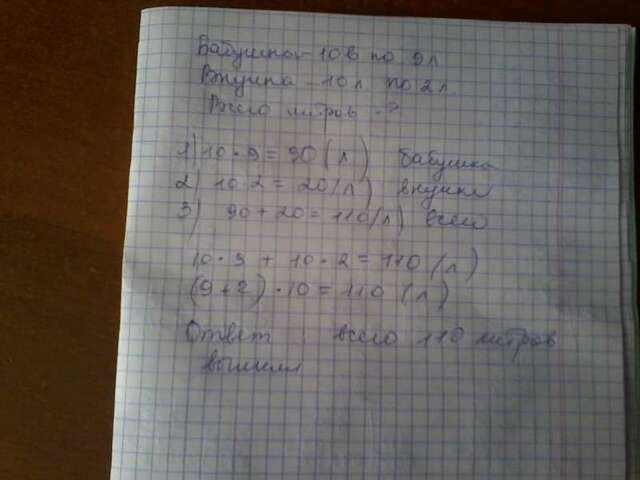 Бабушка - 10 в по 9 л
Внучка - 10 л по 2 л
Всего литров - ?
1) 10 · 9 = 90 (л) бабушка
2) 10 · 2 = 20 (л) внучка
3) 90 + 20 = 110 (л) всего
10 · 9 + 10 · 2 = 110 (л)
(9 + 2) · 10 = 110 (л)
Ответ всего 110 литров
вылили